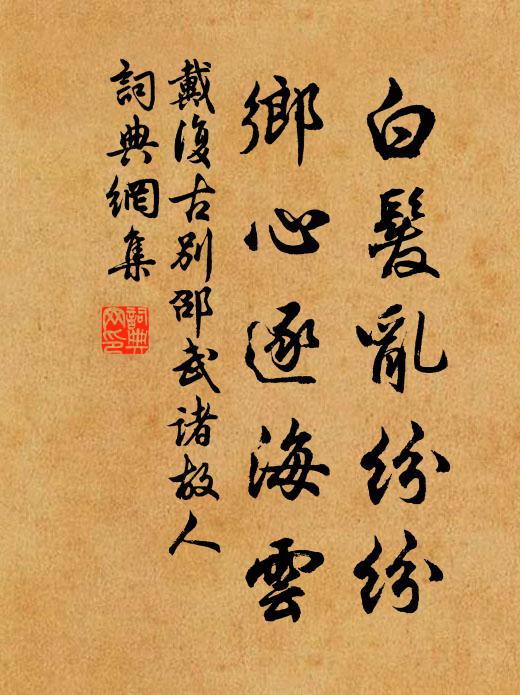 白髮亂紛紛
鄉心逐海雲
戴復古別邵武諸故人
詞典網集
詞典網印